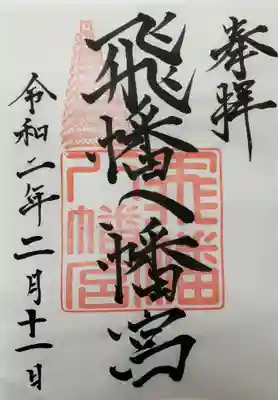 奉拝
飛幡八幡宮
飛幡八幡宮
令和二年二月十一日